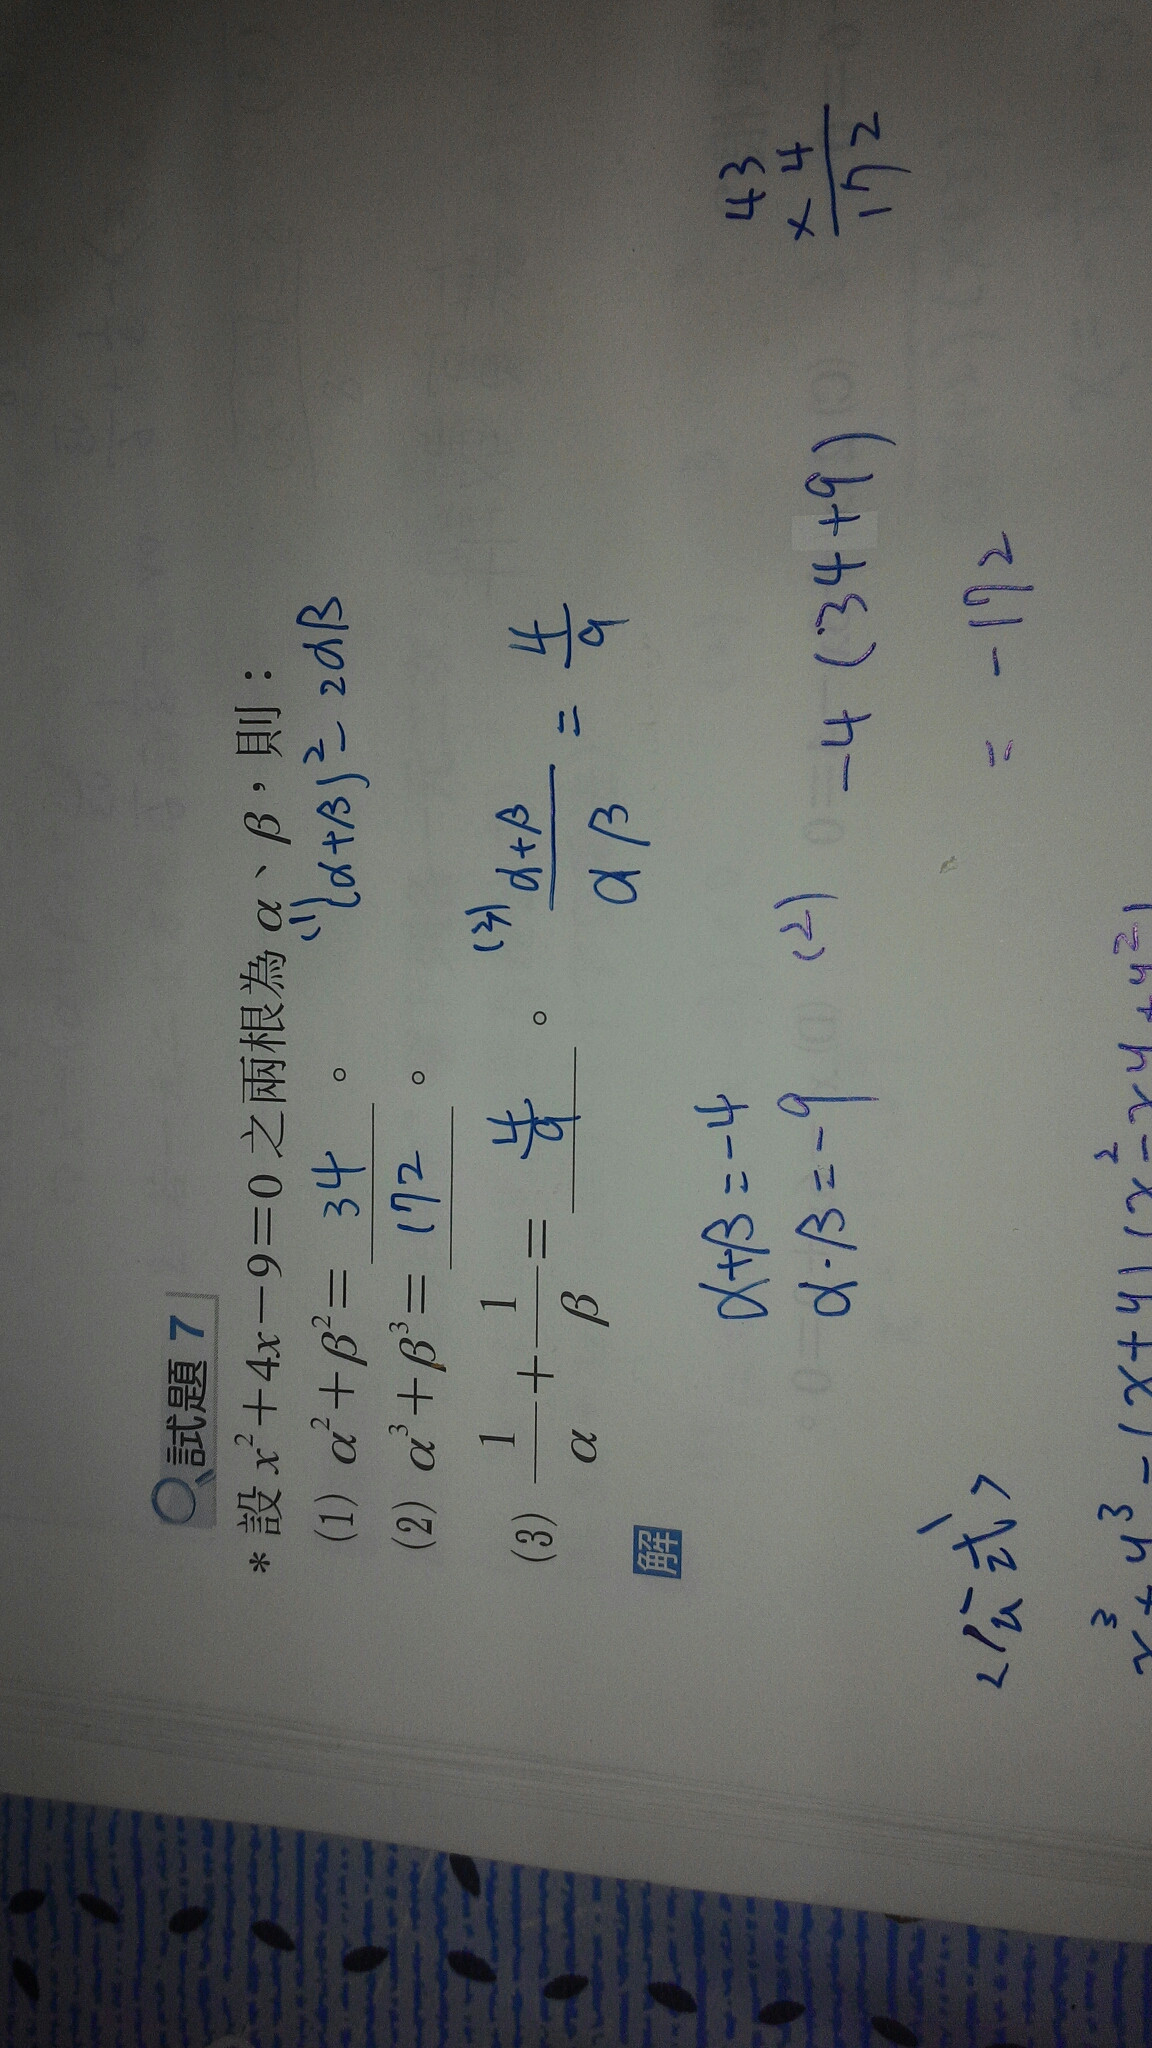 試題 7
* 設 x²+4x−9=0 之兩根為 α、β,則:
(1) α²+β²= 34 。
(1) (α+β)²−2αβ
(2) α³+β³= 172 。
(3) 1/α + 1/β = 4/9 。
(3) α+β/αβ = 4/9
解
α+β=−4
α·β=−9
(2) −4(34+9)
= −172
43
× 4
172
<公式>
x³+y³=(x+y)(x²−xy+y²)